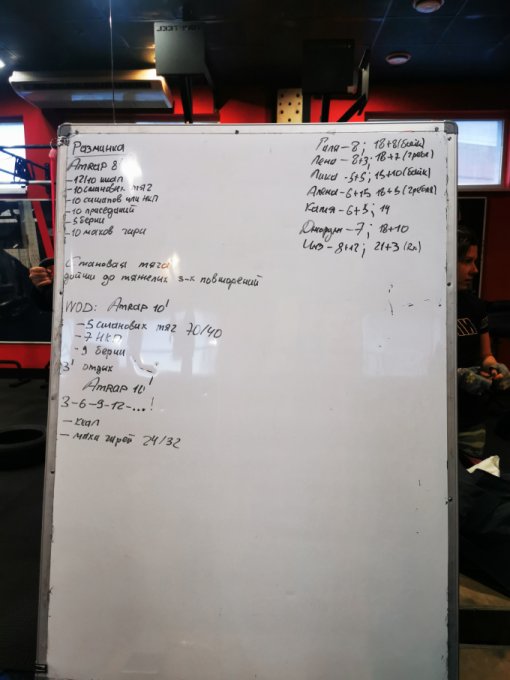 Разминка
AMRAP 8'
-12/10 ккал
-10 становых тяг
-10 ситапов или НКП
-10 приседаний
-5 берпи
-10 махов гири
Становая тяга
дойти до тяжелых 3-х повторений
WOD: AMRAP 10'
-5 становых тяг 70/40
-7 НКП
-9 берпи
3' отдых
AMRAP 10'
3-6-9-12-...!
-ккал
-махи гирей 24/32
Лена-8+3; 18+7 (гребля)
Лика-5+5; 15+10 (байк)
Алёна-6+15 18+5 (гребля)
Катя-6+5; 19
-7; 18+10
-8+2; 21+3